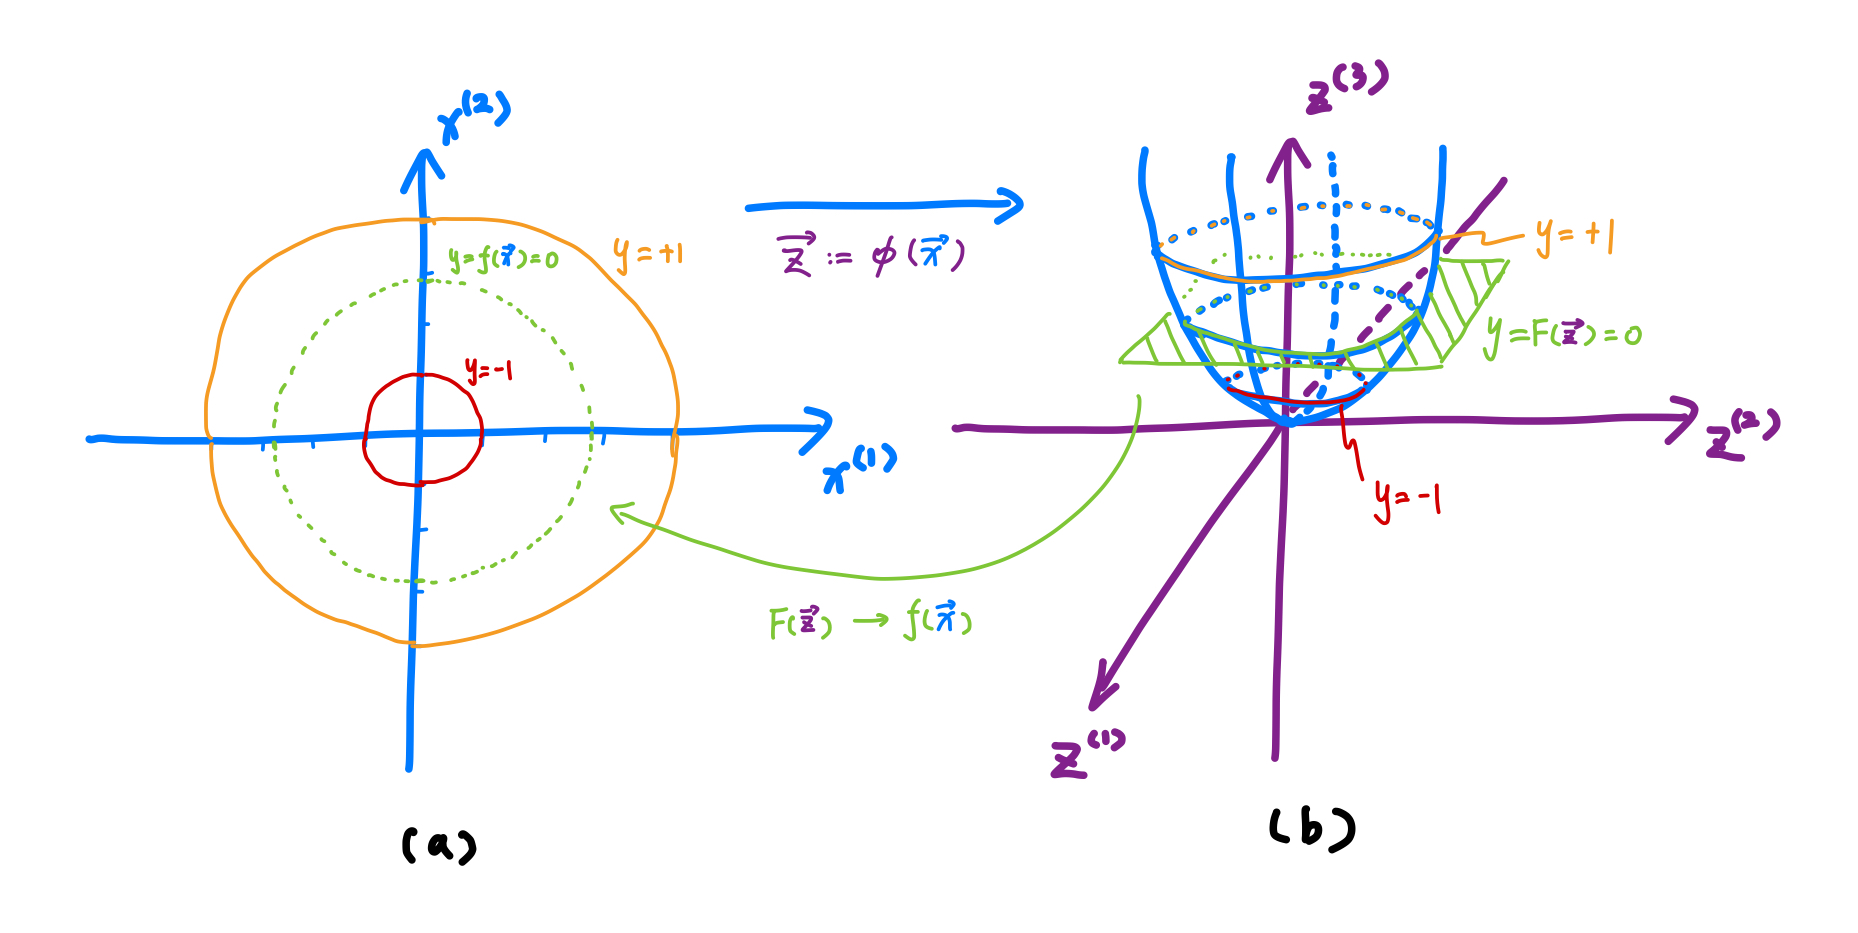 x⁽²⁾
y=f(x⃗)=0
y=+1
y=-1
x⁽¹⁾
(a)
z⃗ := ϕ(x⃗)
F(z⃗) → f(x⃗)
z⁽³⁾
y=+1
y=F(z⃗)=0
z⁽²⁾
y=-1
z⁽¹⁾
(b)